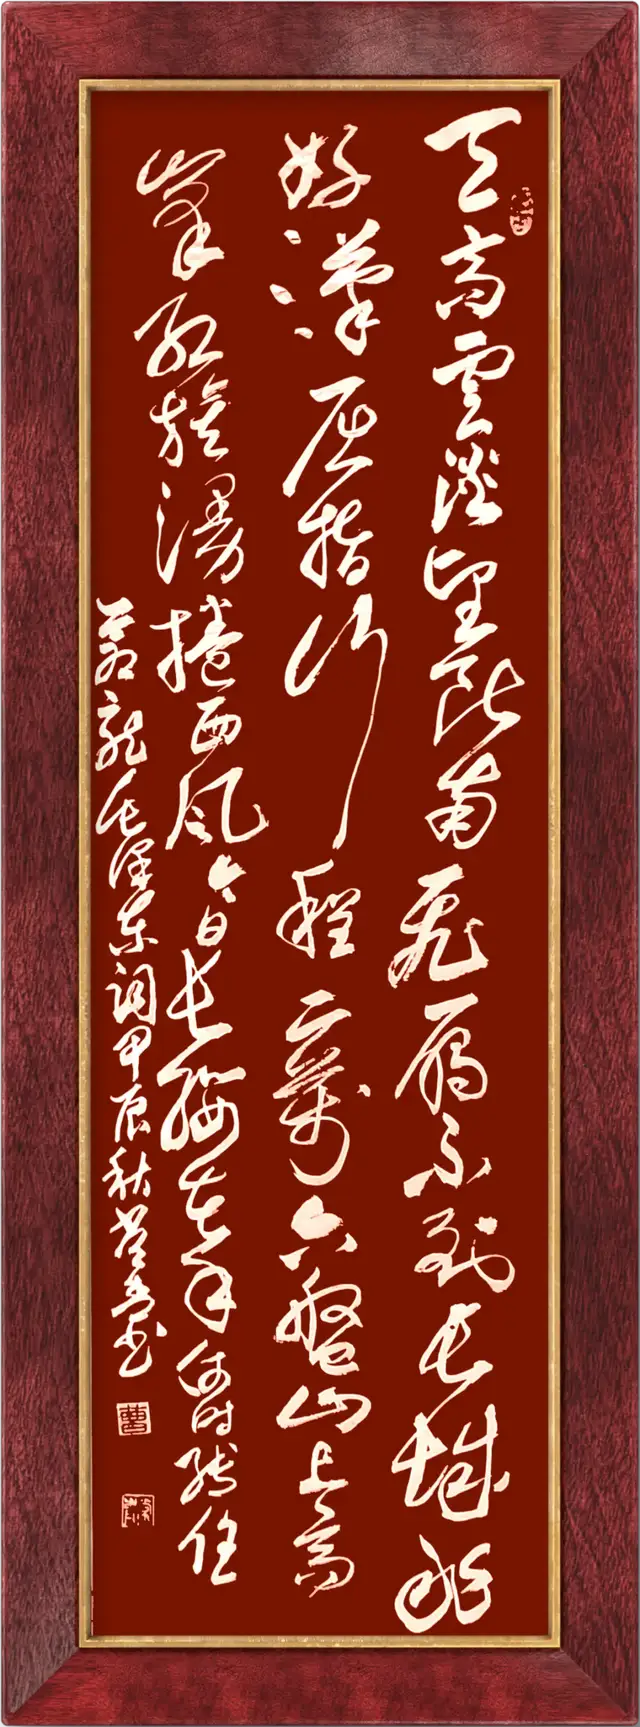 天高雲淡望断南飛雁不到長城非
好漢屈指行程二萬六盤山上高
峰紅旗漫捲西風今日長纓在手何時縛住
蒼龍毛澤東詞甲辰秋書
曹